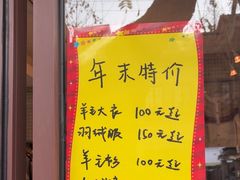 年末特价
羊毛大衣 100元起
羽绒服 150元起
羊毛衫 100元起